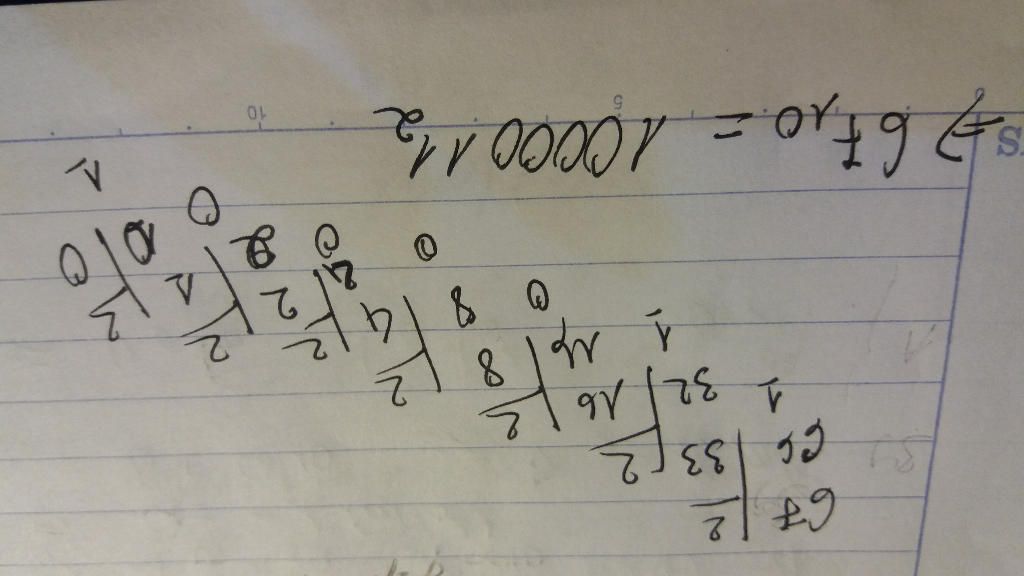 67 | 2
66 33 | 2
1 32 16 | 2
1 16 8 | 2
0 8 4 | 2
0 4 2 | 2
0 2 1 | 2
0 0 0
1
=> 67₁₀ = 1000011₂
5 10